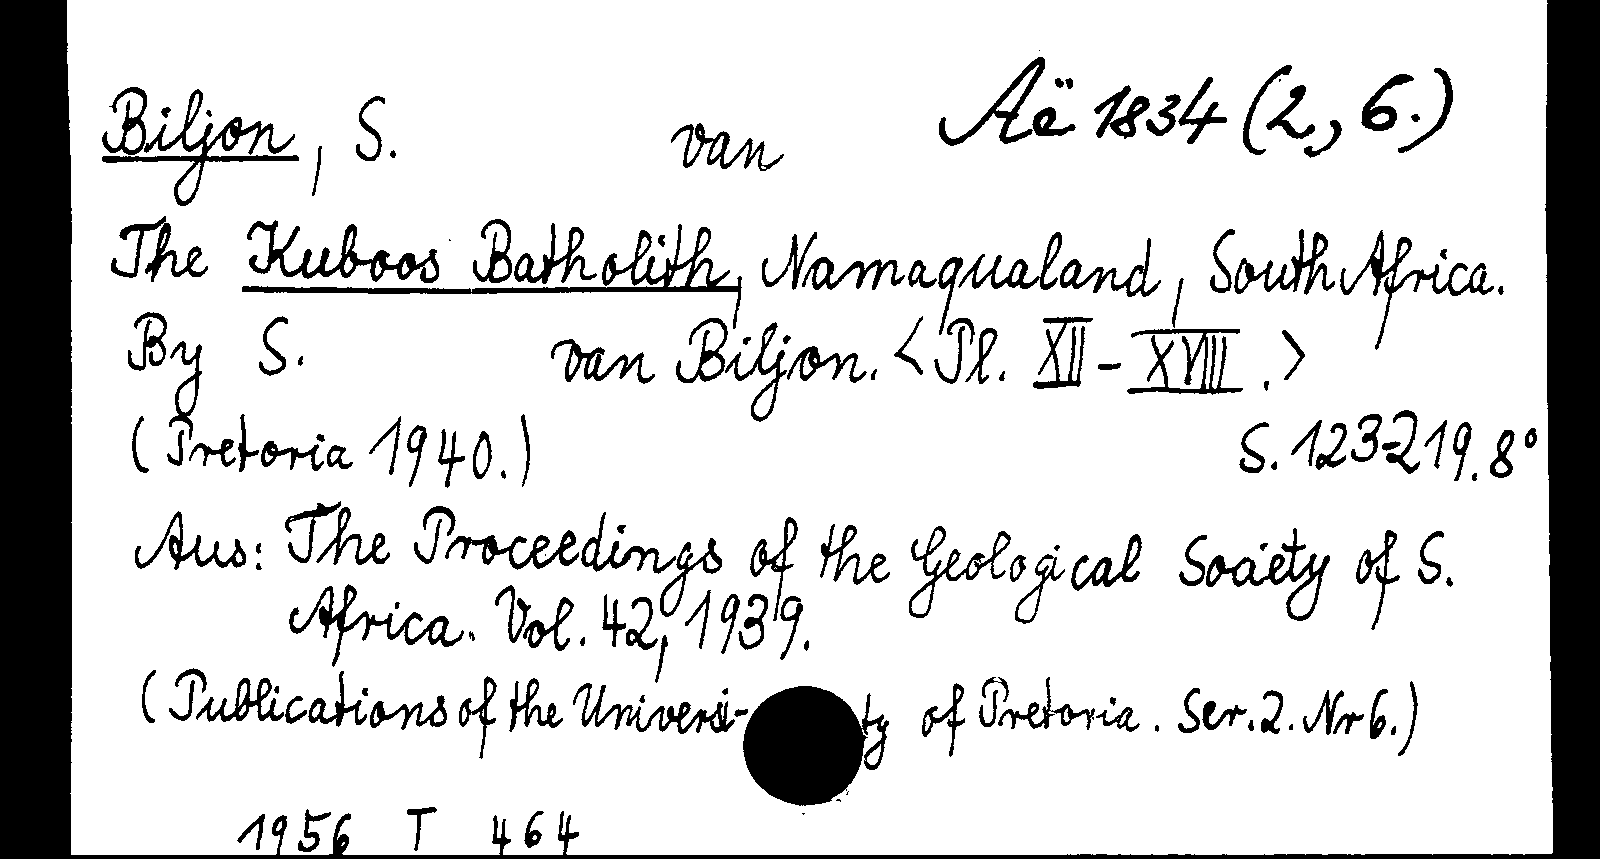 Biljon, S. van Aë 1834 (2, 6.)
The Kuboos Batholith, Namaqualand, South Africa.
By S. van Biljon. <Pl. XII - XVIII.>
(Pretoria 1940.) S. 123-219. 8°
Aus: The Proceedings of the Geological Society of S.
Africa. Vol. 42, 1939.
(Publications of the Universi-ty of Pretoria. Ser. 2. Nr 6.)
1956 T 464